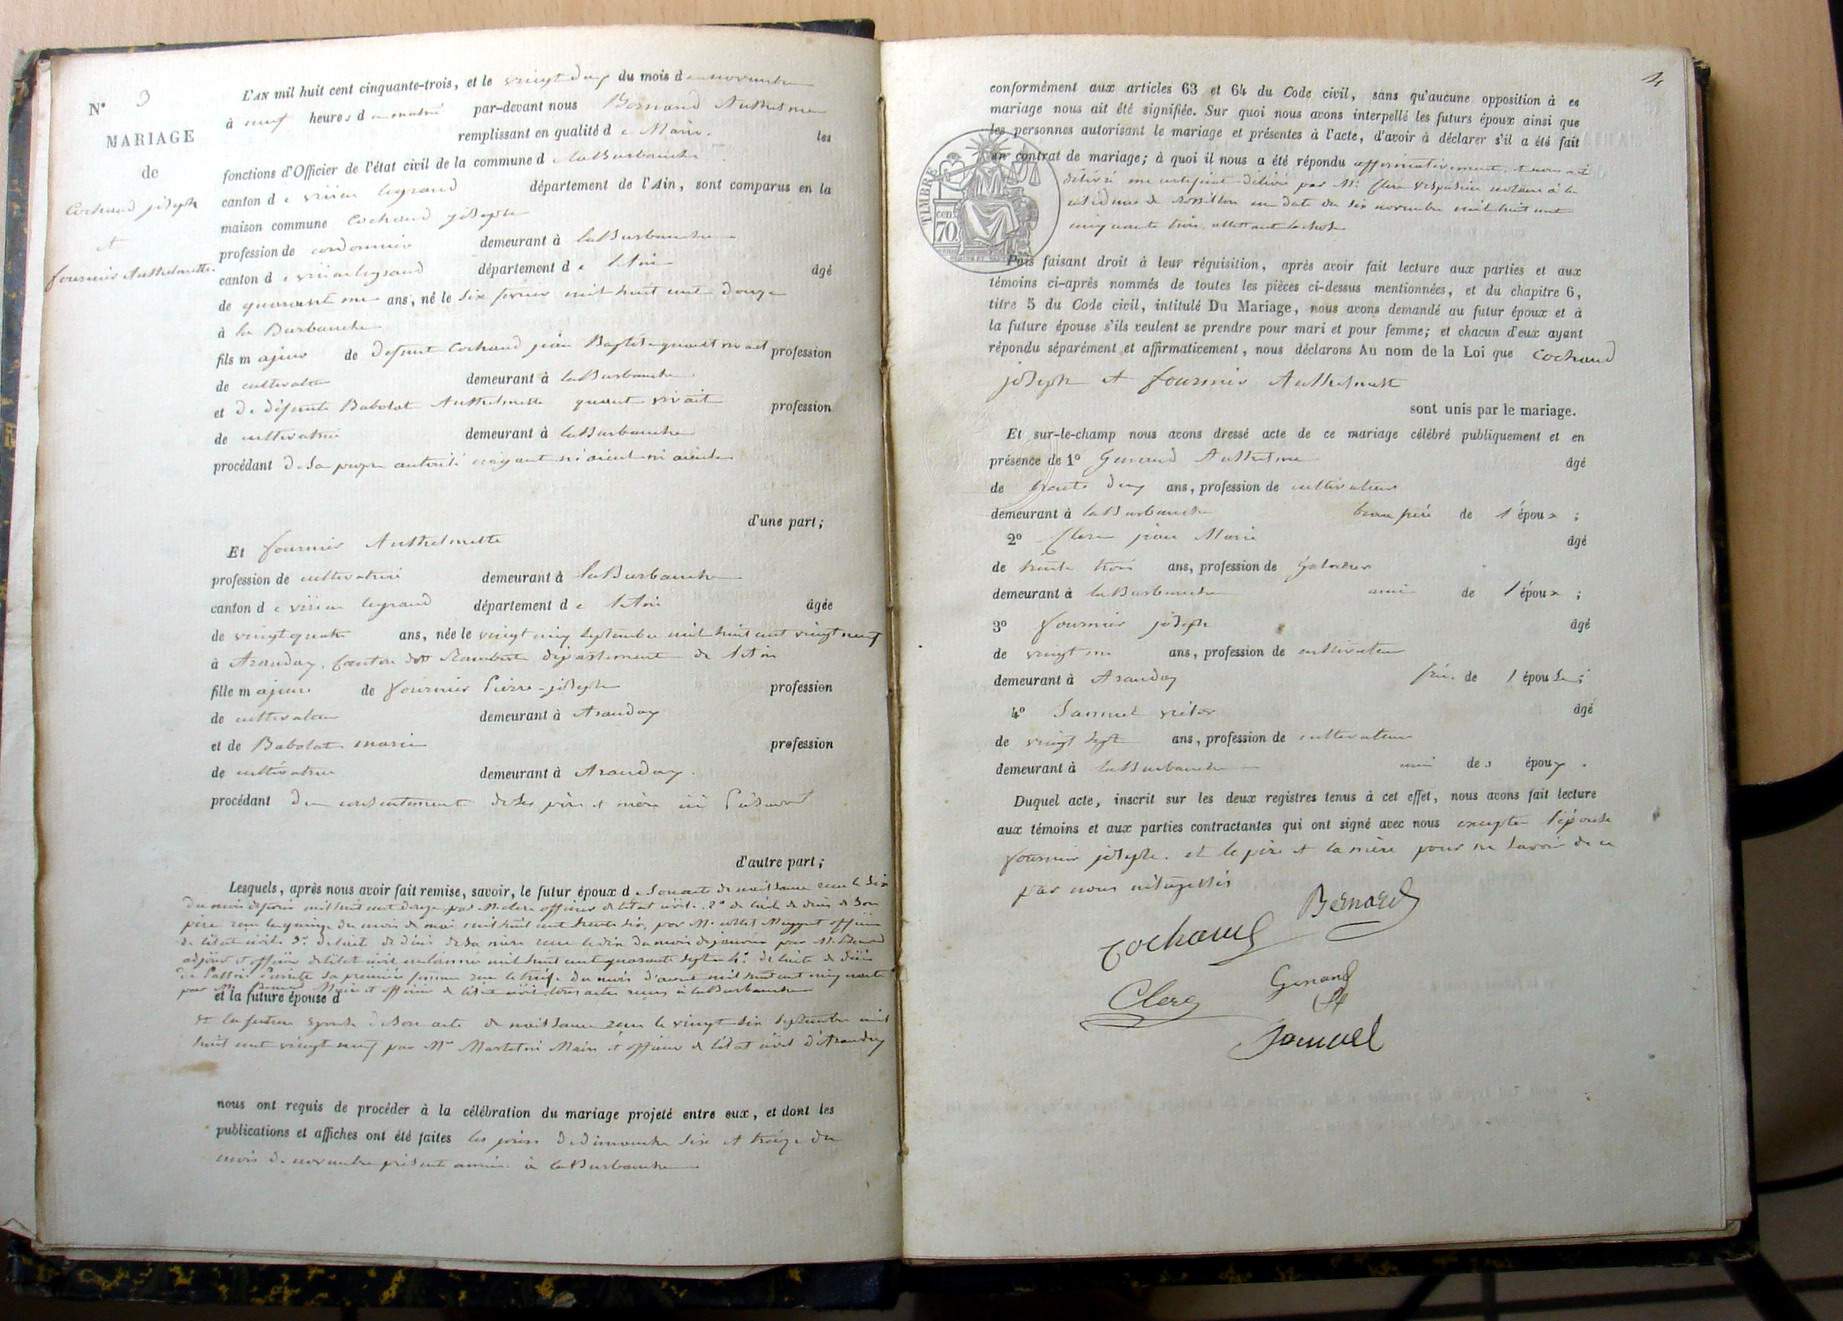 N° 3
MARIAGE
de
Cochaud joseph
et
fournier Authelmette
L'AN mil huit cent cinquante-trois, et le vingt deux du mois de novembre
à neuf heures d u matin par-devant nous Bernard Authelme
remplissant en qualité d e Maire. les
fonctions d'Officier de l'état civil de la commune d e laBurbanche
canton d e virieu legrand département de l'Ain, sont comparus en la
maison commune Cochaud joseph
profession de cordonnier demeurant à laBurbanche
canton d e virieu legrand département d e l'Ain âgé
de quarante un ans, né le six février mil huit cent douze
à la Burbanche
fils m ajeur de defunt Cochaud jean Baptiste quand vivait profession
de cultivateur demeurant à laBurbanche
et de défunte Babolat Authelmette quant vivait profession
de cultivatrice demeurant à laBurbanche
procédant de sa propre autorité n'ayant ni aieul ni aieule
d'une part;
Et fournier Authelmette
profession de cultivatrice demeurant à laBurbanche
canton d e virieu legrand département d e l'Ain âgée
de vingt quatre ans, née le vingt cinq septembre mil huit cent vingt neuf
à Aranday, Canton de St Rambert département de l'Ain
fille m ajeure de fournier Pierre-joseph profession
de cultivateur demeurant à Aranday
et de Babolat marie profession
de cultivatrice demeurant à Aranday.
procédant du consentement de ses père et mère ici Présent
d'autre part;
Lesquels, après nous avoir fait remise, savoir, le futur époux d e Son acte de naissance reçu le six
du mois de février mil huit cent douze par M. clerc officier de l'état civil. 2° de l'acte de décès de Son
père reçu le quinze du mois de mai mil huit cent trente six, par Mr officier
de l'état civil 3° de l'acte de décès de sa mère reçu le dix du mois de janvier par Mr Bernard
adjoint et officier de l'état civil mil huit cent quarante sept 4° de l'acte de décès
de sa première femme reçu le treize du mois d'avril mil huit cent cinquante
par Mr Bernard Maire et officier de l'état civil, tous actes reçus à laBurbanche
et la future épouse d
et la future épouse de Son acte de naissance reçu le vingt six septembre mil
huit cent vingt neuf par Mr Maire et officier de l'état civil d'Aranday
nous ont requis de procéder à la célébration du mariage projeté entre eux, et dont les
publications et affiches ont été faites les jours de dimanche six et treize du
mois de novembre présent année à laBurbanche
4
conformément aux articles 63 et 64 du Code civil, sans qu'aucune opposition à ce
mariage nous ait été signifiée. Sur quoi nous avons interpellé les futurs époux ainsi que
les personnes autorisant le mariage et présentes à l'acte, d'avoir à déclarer s'il a été fait
un contrat de mariage; à quoi il nous a été répondu affirmativement et nous ont
délivré un certificat délivré par Mr Clerc Vespasien notaire à la
résidence de Rossillon en date du six novembre mil huit cent
cinquante trois attestant la chose
TIMBRE
cent
70
Puis faisant droit à leur réquisition, après avoir fait lecture aux parties et aux
témoins ci-après nommés de toutes les pièces ci-dessus mentionnées, et du chapitre 6,
titre 5 du Code civil, intitulé Du Mariage, nous avons demandé au futur époux et à
la future épouse s'ils veulent se prendre pour mari et pour femme; et chacun d'eux ayant
répondu séparément et affirmativement, nous déclarons Au nom de la Loi que Cochaud
joseph et fournier Authelmette
sont unis par le mariage.
Et sur-le-champ nous avons dressé acte de ce mariage célébré publiquement et en
présence de 1° Genand Authelme âgé
de trente deux ans, profession de cultivateur
demeurant à laBurbanche beau frère de l'époux ;
2° Clerc jean Marie âgé
de trente trois ans, profession de
demeurant à laBurbanche ami de l'époux ;
3° fournier joseph âgé
de vingt un ans, profession de cultivateur
demeurant à Aranday frère de l'épouse ;
4° Samuel victor âgé
de vingt sept ans, profession de cultivateur
demeurant à laBurbanche ami de s époux .
Duquel acte, inscrit sur les deux registres tenus à cet effet, nous avons fait lecture
aux témoins et aux parties contractantes qui ont signé avec nous excepté l'épouse
fournier joseph. et le père et la mère pour ne savoir de ce
par nous interpellés
Bernard
Cochaud
Clerc
Genand
Samuel